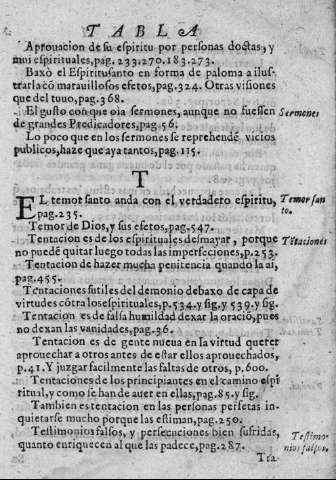 TABLA
Aprouacion de su espiritu por personas doctas, y
mui espirituales, pag. 233.270.183.273.
Baxò el Espiritusanto en forma de paloma a ilus-
trarla cō marauillosos efetos, pag.324. Otras visiones
que del tuuo, pag.368.
El gusto con que oia sermones, aunque no fuessen
de grandes Predicadores, pag.56.
Sermones
Lo poco que en los sermones se reprehendē vicios
publicos, haze que aya tantos, pag.115.
T
EL temor santo anda con el verdadero espiritu,
pag.235.
Temor san
to.
Temor de Dios, y sus efetos, pag.547.
Tentacion es de los espirituales desmayar, porque
no puedē quitar luego todas las imperfecciones, p.253.
Tētaciones
Tentacion de hazer mucha penitencia quando la ai,
pag.455.
Tentaciones sutiles del demonio debaxo de capa de
virtudes cōtra los espirituales, p.534. y sig. y 539. y sig.
Tentacion es de falsa humildad dexar la oraciō, pues
no dexan las vanidades, pag.36.
Tentacion es de gente nueua en la virtud querer
aprouechar a otros antes de estar ellos aprouechados,
p.41. Y juzgar facilmente las faltas de otros, p.600.
Tentaciones de los principiantes en el camino espi
ritual, y como se han de auer en ellas, pag.85. y sig.
Tambien es tentacion en las personas perfetas in-
quietarse mucho porque las estiman, pag.250.
Testimonios falsos, y persecuciones bien sufridas,
quanto enriquecen al que las padece, pag.287.
Testimo-
nios falsos.
Tra-